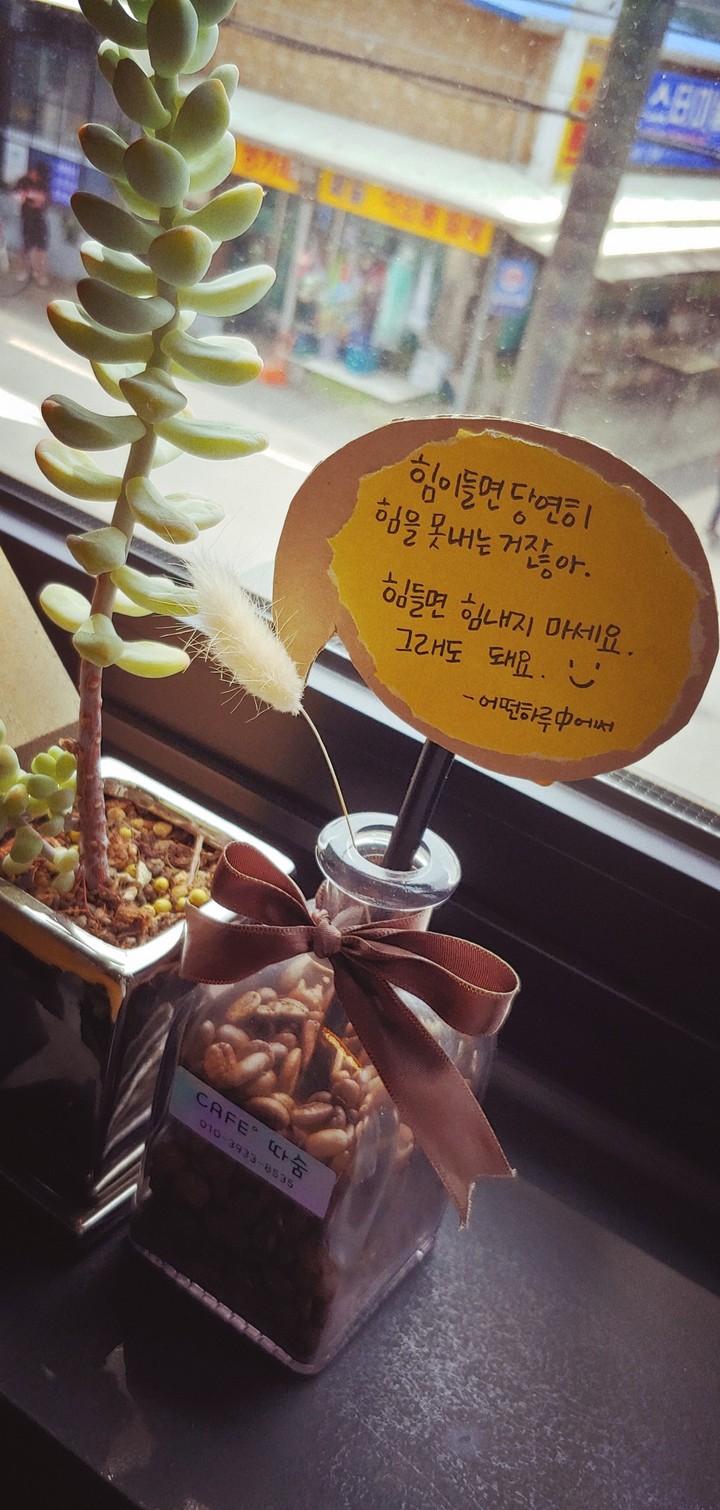 스테이
힘이들면 당연히
힘을 못내는 거잖아.
힘들면 힘내지 마세요.
그래도 돼요.
-어떤하루中에써
CAFE° 따숨
010-3933-8535